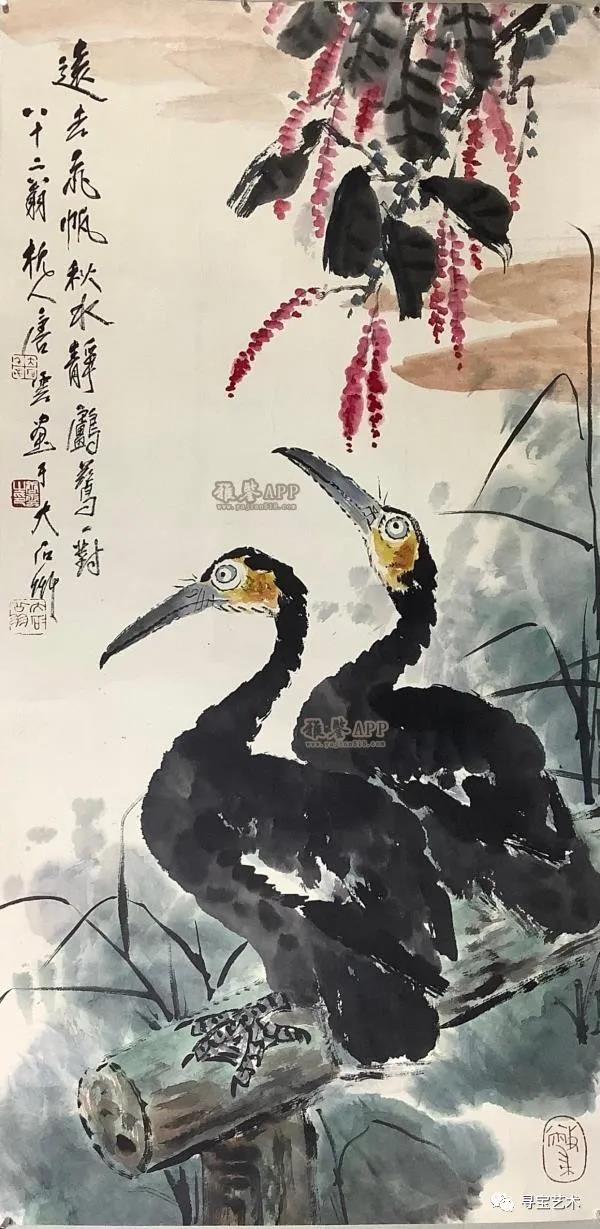 遠去飛帆秋水靜鸕鶿一對
八十二翁杭人唐雲畫于大石齋
雅鑒APP
www.yajian818.com
雅鑒APP
www.yajian818.com
寻宝艺术